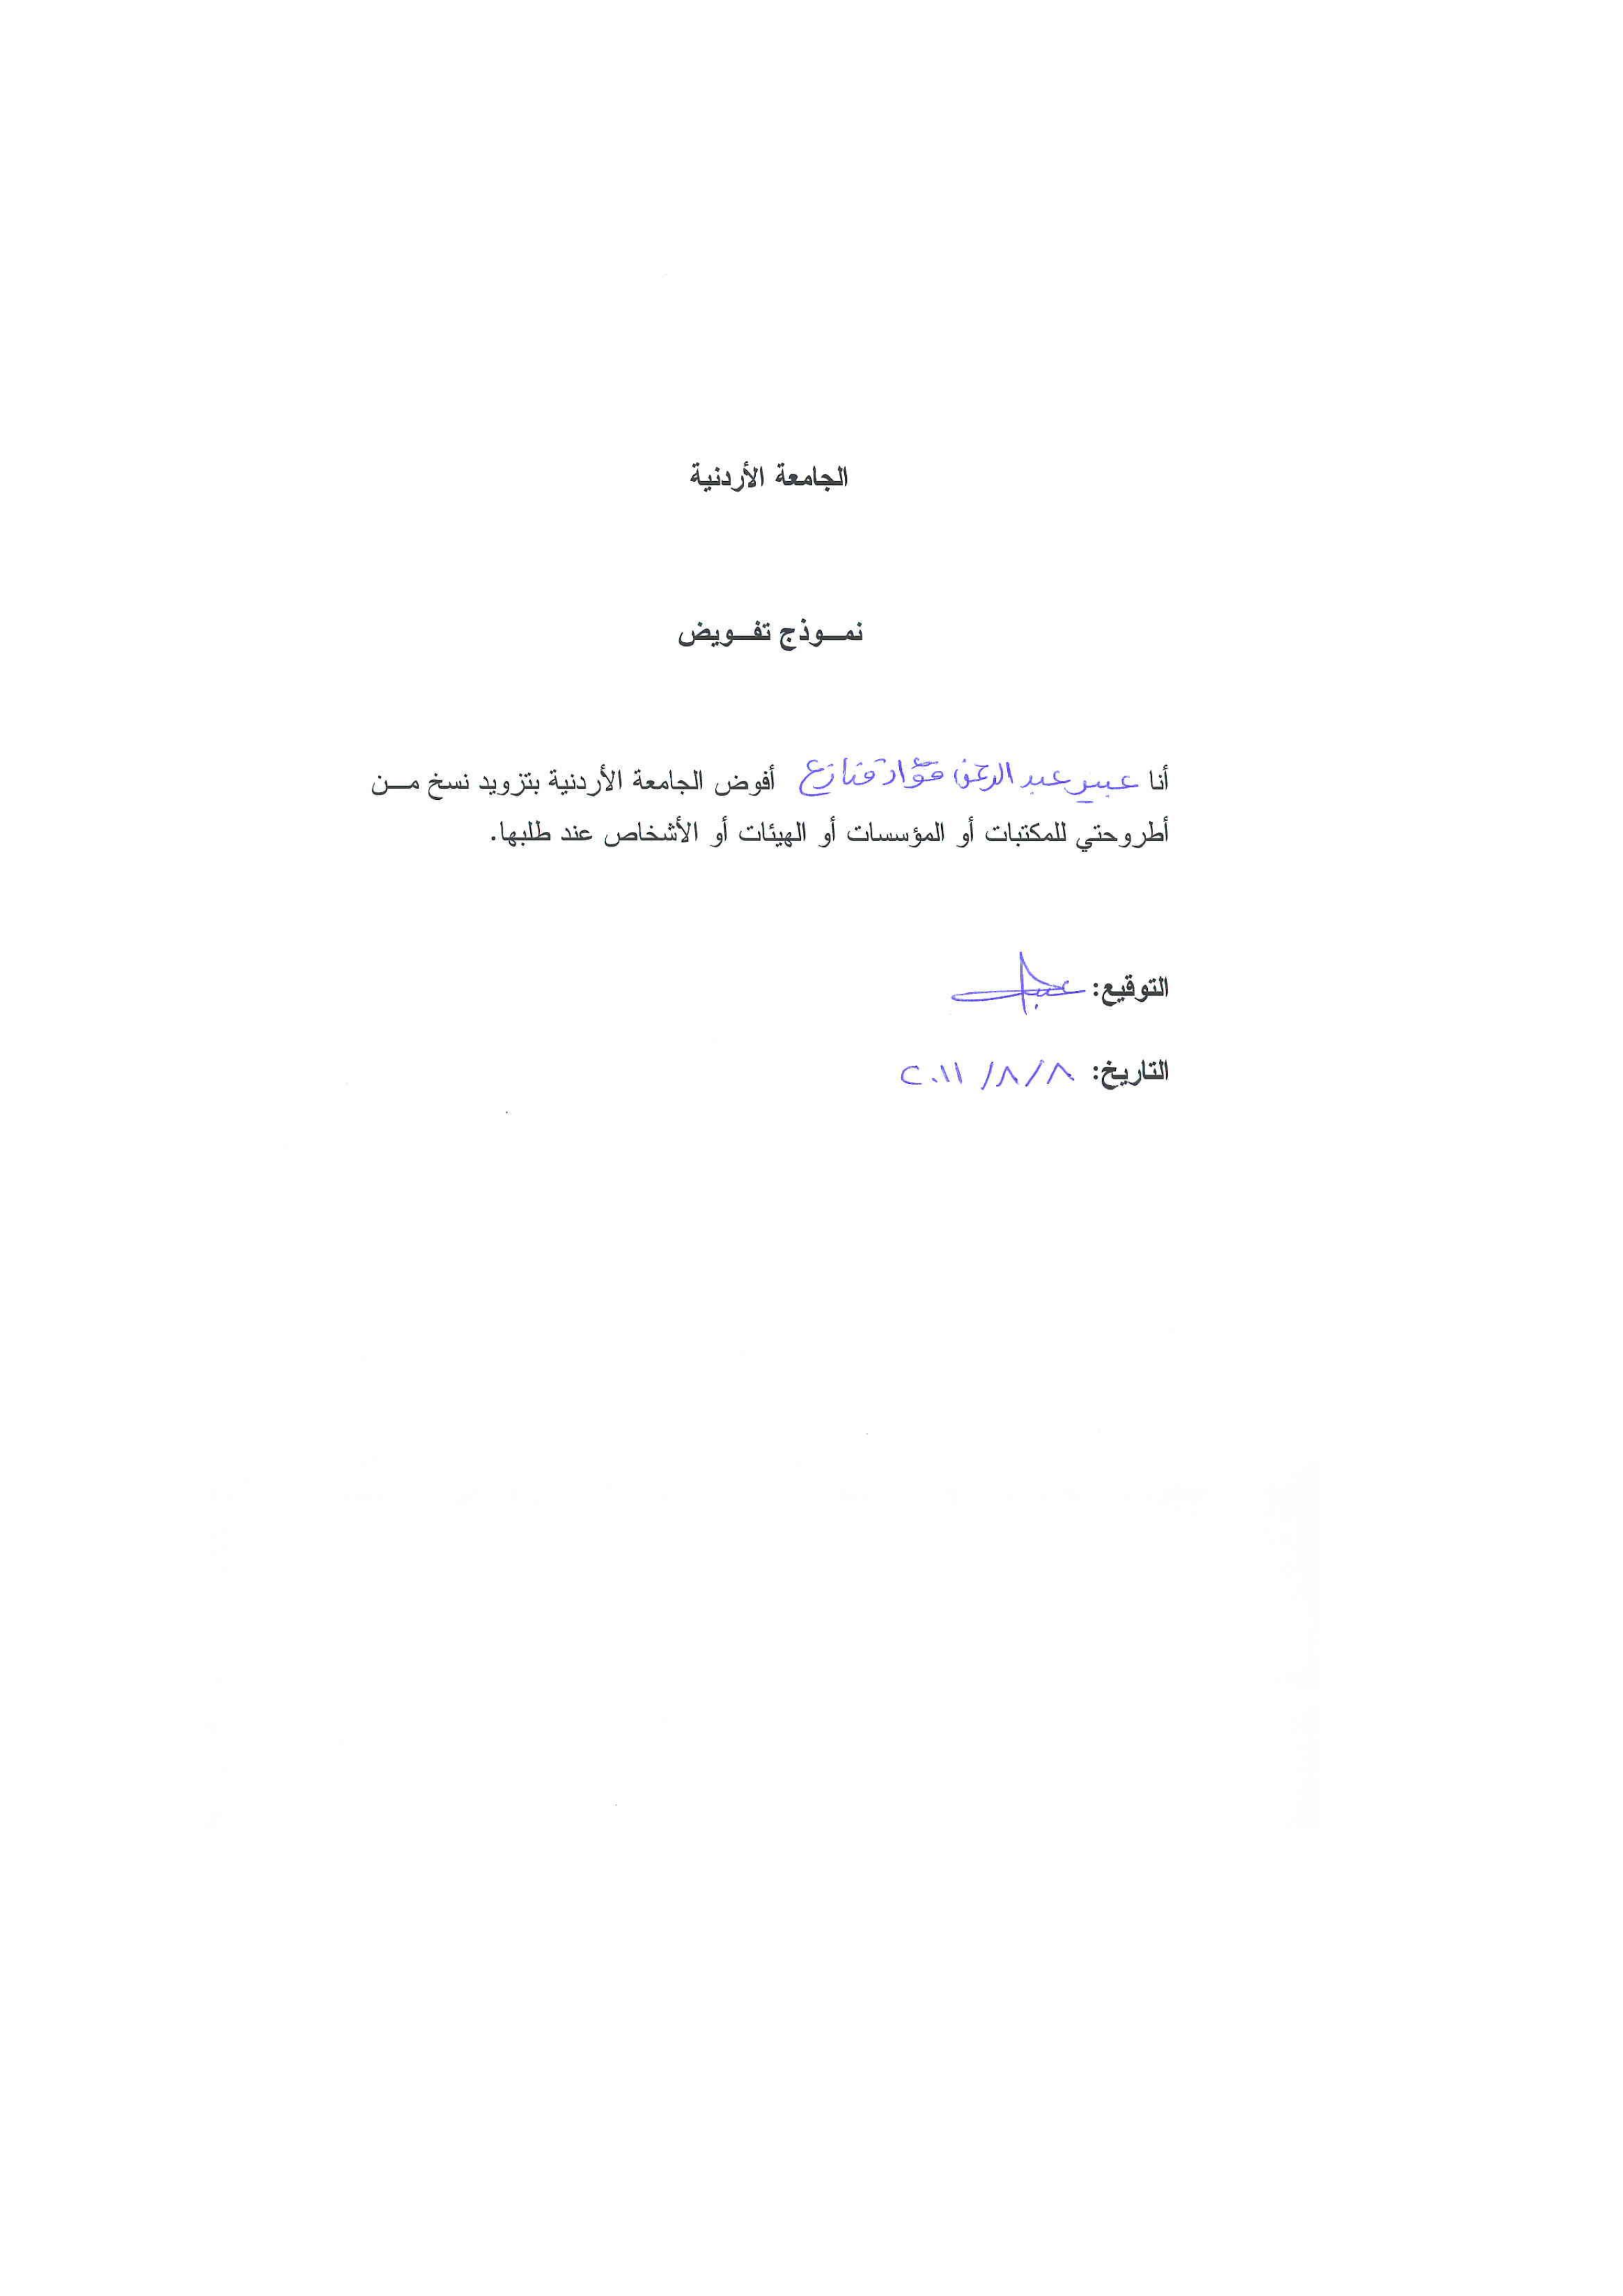 الجامعة الأردنية
نمـــوذج تفـــويض
أنا عبير عبد الرحمن فؤاد قنازع أفوض الجامعة الأردنية بتزويد نسخ مـــن
أطروحتي للمكتبات أو المؤسسات أو الهيئات أو الأشخاص عند طلبها.
التوقيع: عبير
التاريخ: ٨/٨/ ٢٠١١